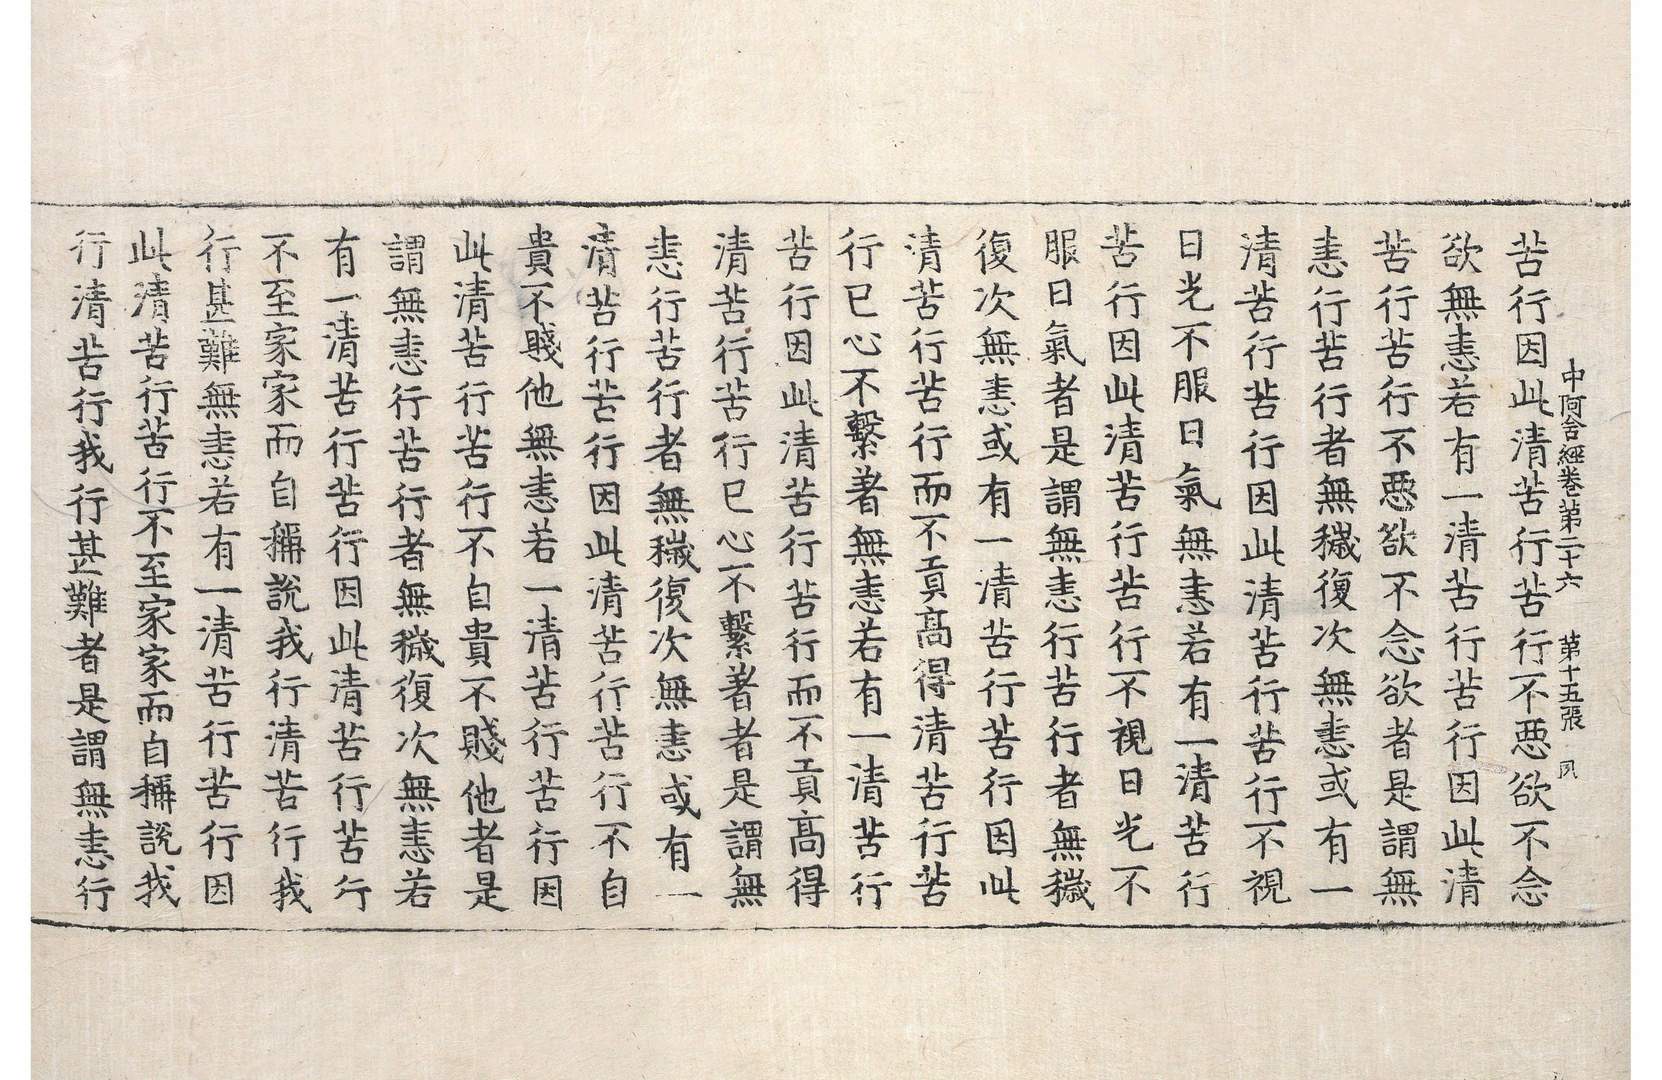 中阿含經卷第二十六 第十五張 夙
苦行因此清苦行苦行不悪欲不念
欲無恚若有一清苦行苦行因此清
苦行苦行不悪欲不念欲者是謂無
恚行苦行者無穢復次無恚或有一
清苦行苦行因此清苦行苦行不視
日光不服日氣無恚若有一清苦行
苦行因此清苦行苦行不視日光不
服日氣者是謂無恚行苦行者無穢
復次無恚或有一清苦行苦行因此
清苦行苦行而不貢高得清苦行苦
行已心不繫著無恚若有一清苦行
苦行因此清苦行苦行而不貢高得
清苦行苦行已心不繫著者是謂無
恚行苦行者無穢復次無恚或有一
清苦行苦行因此清苦行苦行不自
貴不賤他無恚若一清苦行苦行因
此清苦行苦行不自貴不賤他者是
謂無恚行苦行者無穢復次無恚若
有一清苦行苦行因此清苦行苦行
不至家家而自稱說我行清苦行我
行甚難無恚若有一清苦行苦行因
此清苦行苦行不至家家而自稱說我
行清苦行我行甚難者是謂無恚行